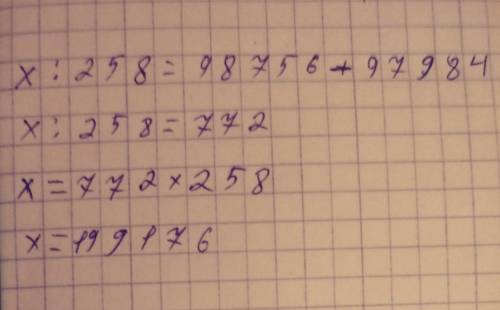 x : 258 = 98756 - 97984
x : 258 = 772
x = 772 × 258
x = 199176